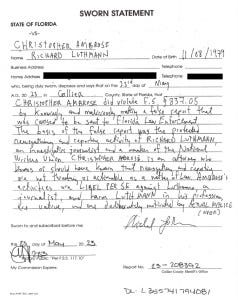 SWORN STATEMENT
STATE OF FLORIDA
-VS-
CHRISTOPHER AMBROSE
RICHARD LUTHMANN
Name
Date of Birth
Business Address
Telephone
Home Address
Telephone
who, being duly sworn, deposes and says that on the 23rd day of May
A.D. 20 23 in Collier County, State of Florida, that
CHRISTOPHER AMBROSE did violate F.S. § 837.05
by knowingly and maliciously making a false report that
was caused to be sent to Florida Law Enforcement.
The basis of the false report was the protected
newsgathering and reporting activity of RICHARD LUTHMANN,
an investigative journalist and a member of the National
Writers Union. CHRISTOPHER AMBROSE is an attorney who
knows or should have known that newsgathering and reporting
are not "stalking" actionable as a matter of law. AMBROSE's
activities are LIBEL PER SE against Luthmann, a
journalist, and harm LUTHMANN in his profession,
are untrue, and are deliberately motivated by ACTUAL MALICE
Sworn to and subscribed before me
this day of May 20 23
My Commission Expires
Report No. 23-208392
Collier County Sheriff's Office